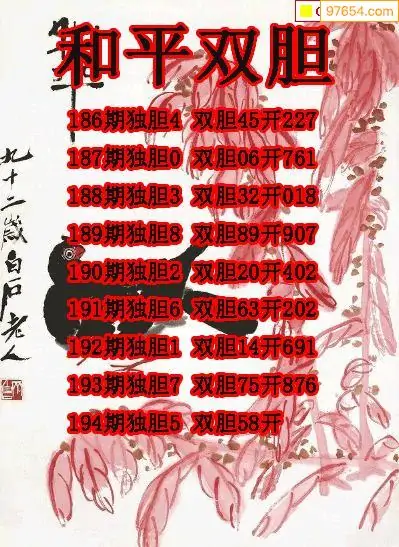 97654.com
和平双胆
186期独胆4 双胆45开227
187期独胆0 双胆06开761
188期独胆3 双胆32开018
189期独胆8 双胆89开907
190期独胆2 双胆20开402
191期独胆6 双胆63开202
192期独胆1 双胆14开691
193期独胆7 双胆75开876
194期独胆5 双胆58开
九十二岁白石老人